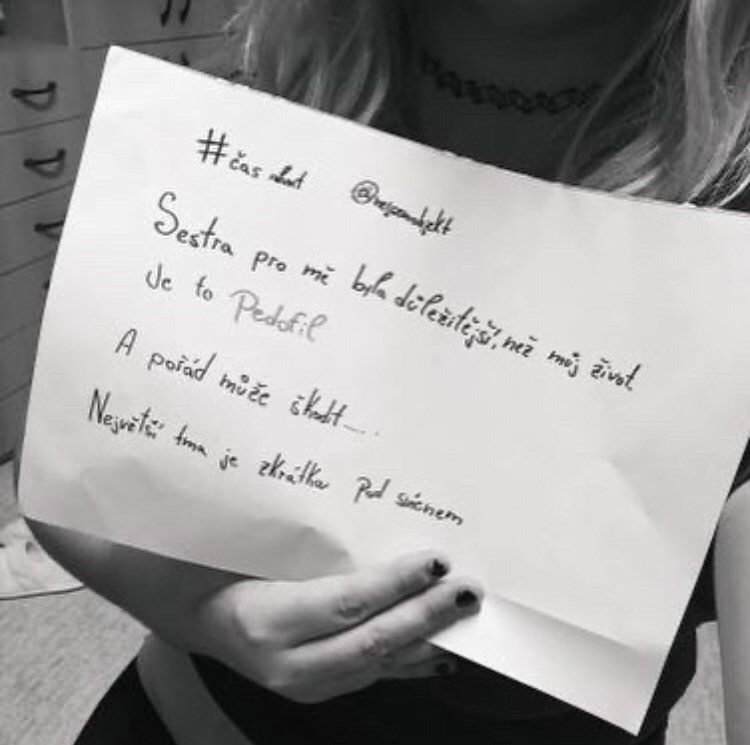 #čas @nejsemobjekt
Sestra pro mě byla důležitější, než můj život.
Je to Pedofil
A pořád může škodit....
Největší tma je zkrátka Pod svícnem